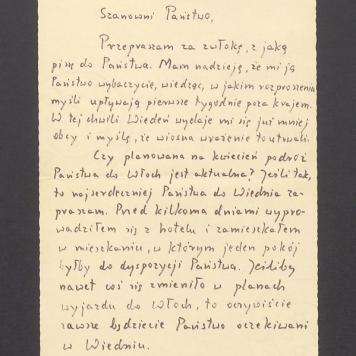 Szanowni Państwo,
Przepraszam za zwłokę, z jaką
piszę do Państwa. Mam nadzieję, że mi ją
Państwo wybaczycie, wiedząc, w jakim rozproszeniu
myśli upływają pierwsze tygodnie poza krajem.
W tej chwili Wiedeń wydaje mi się już mniej
obcy i myślę, że wiosna wrażenie to utrwali.
Czy planowana na kwiecień podróż
Państwa do Włoch jest aktualna? Jeśli tak,
to najserdeczniej Państwa do Wiednia za-
praszam. Przed kilkoma dniami wypro-
wadziłem się z hotelu i zamieszkałem
w mieszkaniu, w którym jeden pokój
byłby do dyspozycji Państwa. Jeśliby
nawet coś się zmieniło w planach
wyjazdu do Włoch, to oczywiście
zawsze będziecie Państwo oczekiwani
w Wiedniu.